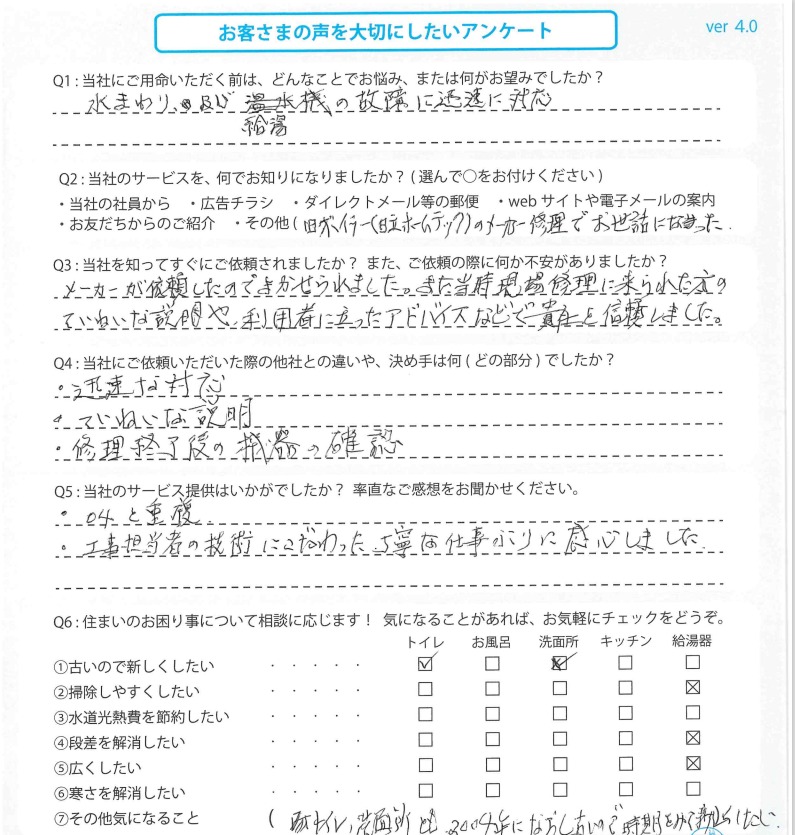 お客さまの声を大切にしたいアンケート
ver 4.0
Q1 : 当社にご用命いただく前は、どんなことでお悩み、または何がお望みでしたか？
水まわり、及び 温水機の故障に迅速に対応
給湯
Q2 : 当社のサービスを、何でお知りになりましたか？ ( 選んで○をお付けください )
・当社の社員から ・広告チラシ ・ダイレクトメール等の郵便 ・web サイトや電子メールの案内
・お友だちからのご紹介 ・その他 ( 旧ボイラー(日立ホームテック)のメーカー修理でお世話になった.
Q3 : 当社を知ってすぐにご依頼されましたか？ また、ご依頼の際に何か不安がありましたか？
メーカーが依頼したのでまかせられました。また当時現場修理に来られた方の
ていねいな説明や、利用者に立ったアドバイスなどで貴社を信頼しました。
Q4 : 当社にご依頼いただいた際の他社との違いや、決め手は何 ( どの部分 ) でしたか？
・迅速な対応
・ていねいな説明
・修理終了後の機器の確認
Q5 : 当社のサービス提供はいかがでしたか？ 率直なご感想をお聞かせください。
・Q4と重複
・工事担当者の技術にこだわった丁寧な仕事ぶりに感心しました
Q6 : 住まいのお困り事について相談に応じます！ 気になることがあれば、お気軽にチェックをどうぞ。
トイレ お風呂 洗面所 キッチン 給湯器
①古いので新しくしたい ・・・・・ ☑ □ ☑ □ □
②掃除しやすくしたい ・・・・・ □ □ □ □ ☒
③水道光熱費を節約したい ・・・・・ □ □ □ □ □
④段差を解消したい ・・・・・ □ □ □ □ ☒
⑤広くしたい ・・・・・ □ □ □ □ ☒
⑥寒さを解消したい ・・・・・ □ □ □ □ □
⑦その他気になること ( トイレ、洗面所 2004年 ので時期をみて